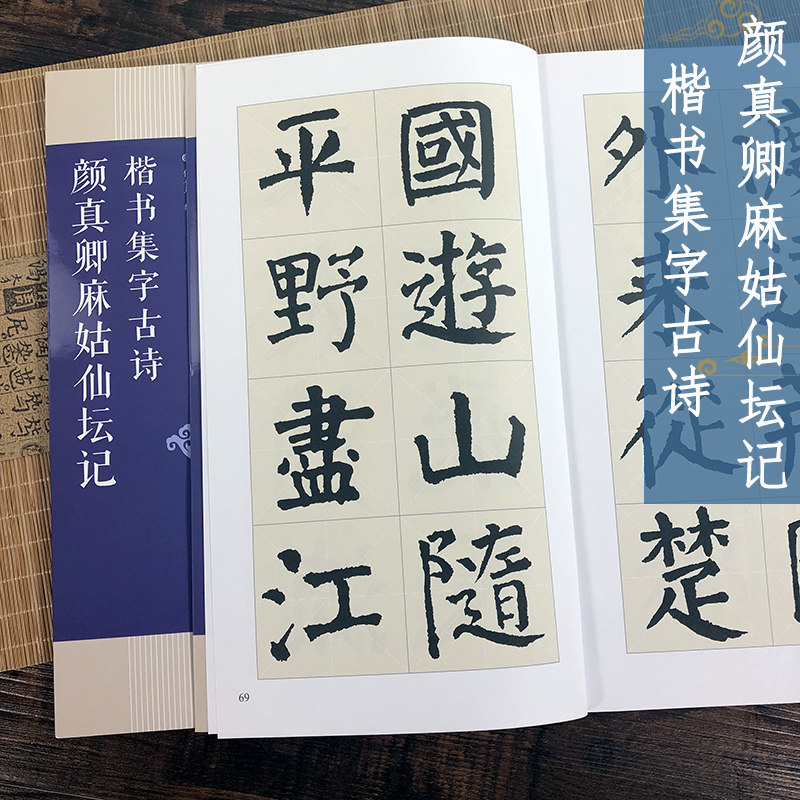 颜真卿麻姑仙坛记
楷书集字古诗
外来從楚
國遊山隨
平野盡江
69
楷书集字古诗
颜真卿麻姑仙坛记